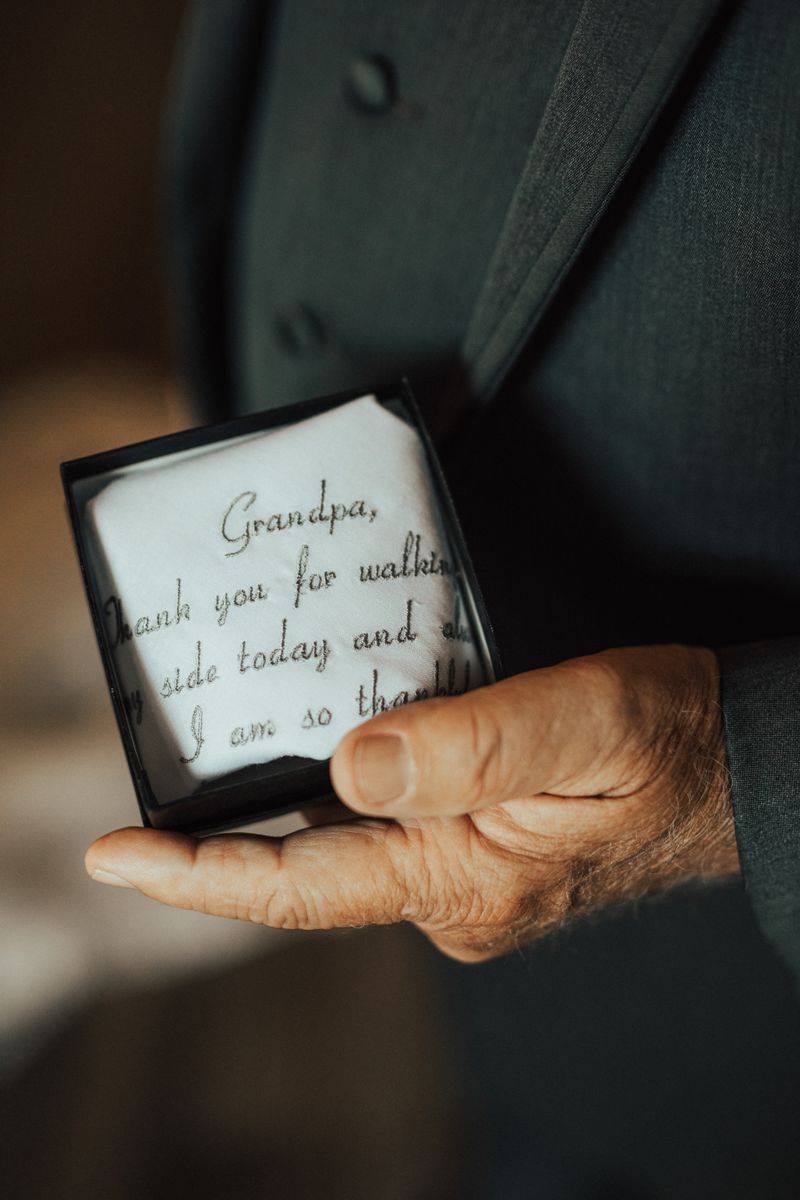 Grandpa,
Thank you for walkin
y side today and al
I am so thankf